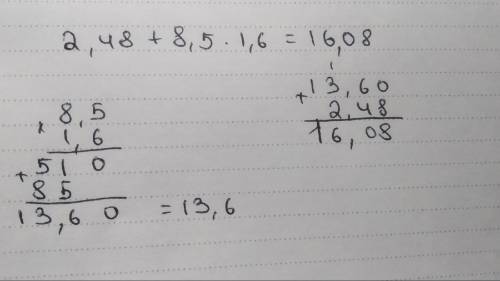 2,48 + 8,5 · 1,6 = 16,08
× 8,5
1,6
+ 510
85
13,60 = 13,6
1
+ 13,60
2,48
16,08